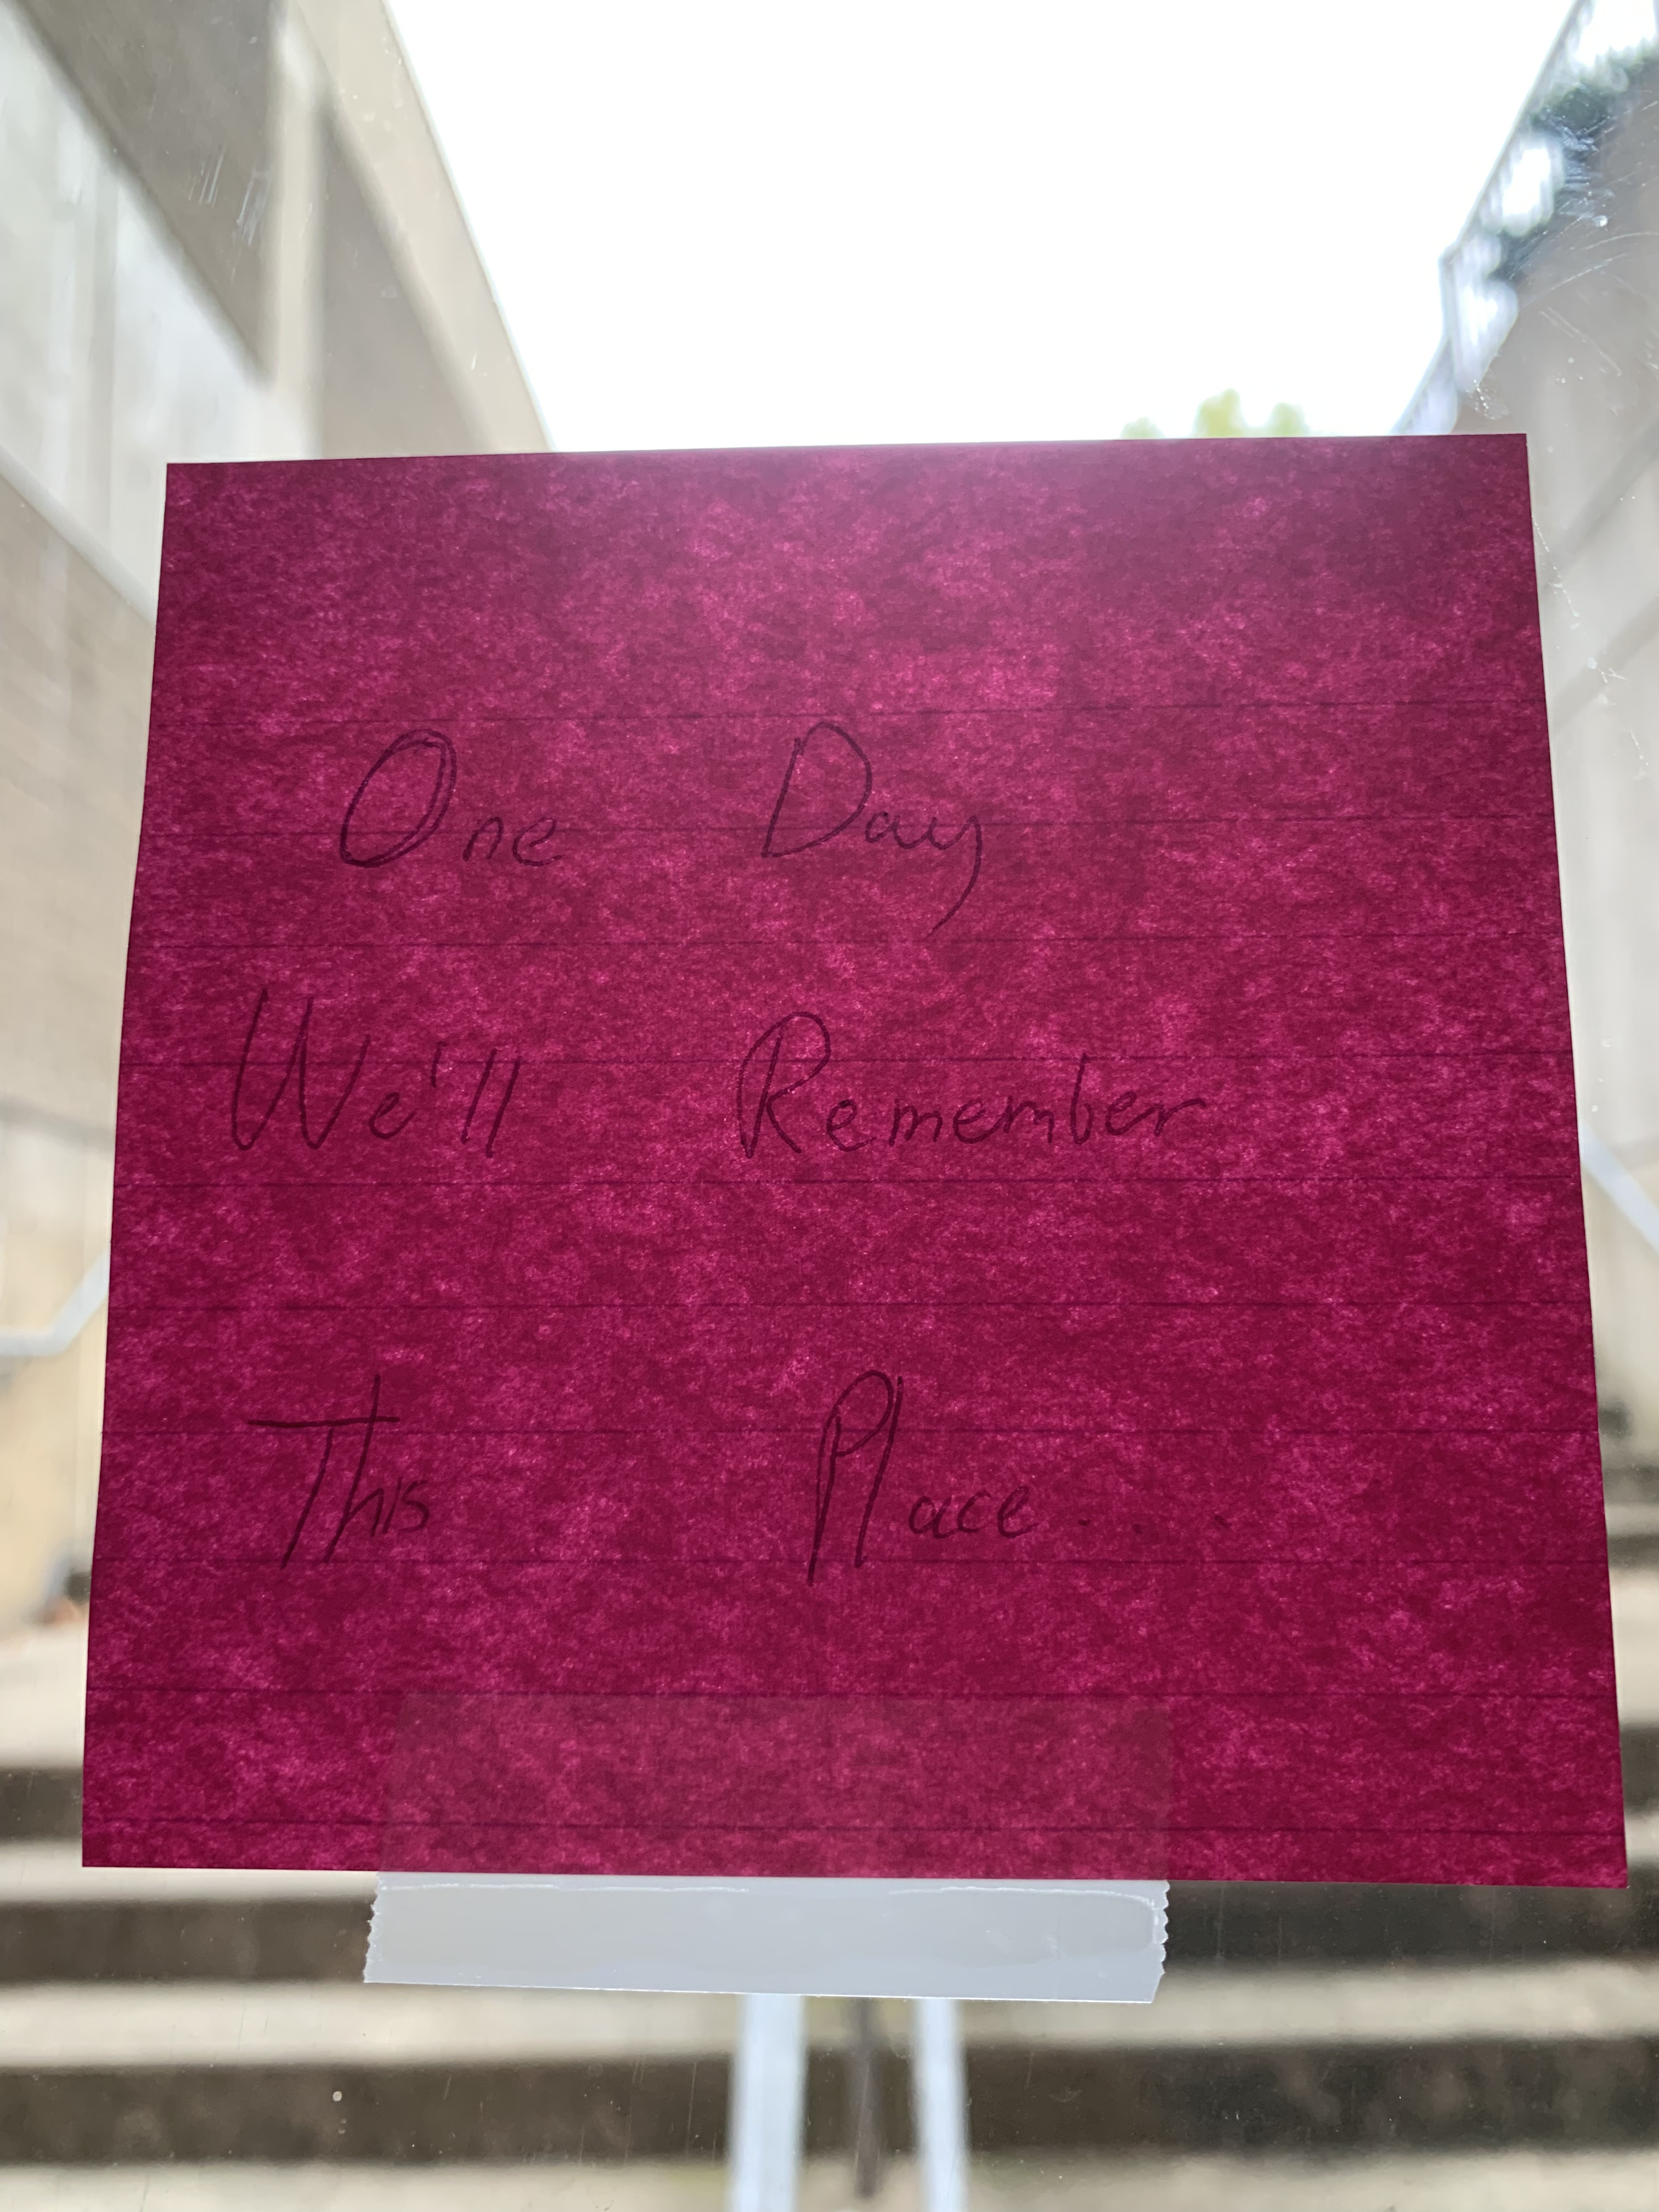 One Day
We'll Remember
This Place...